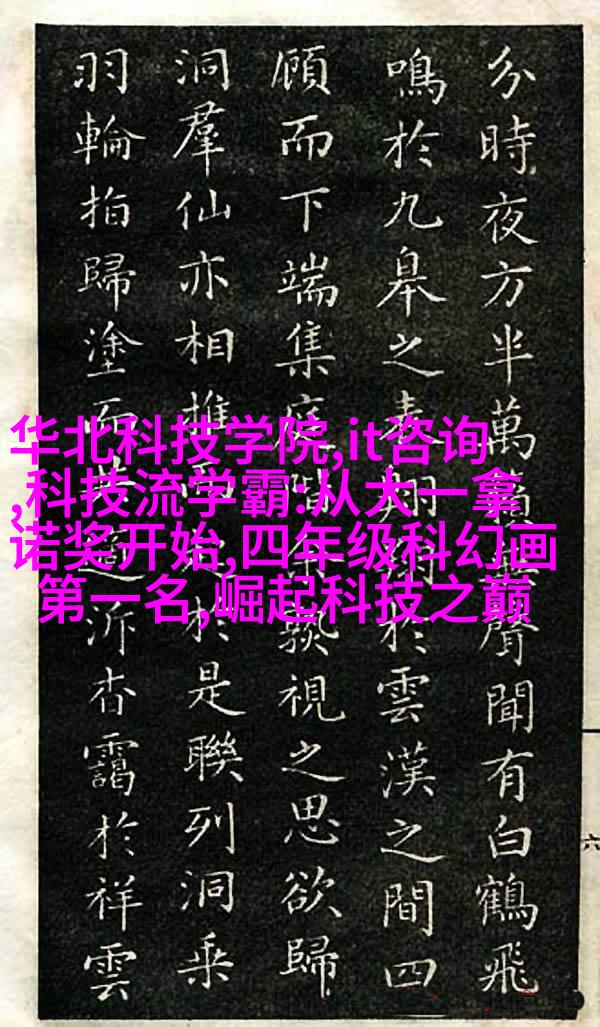 分時夜方半萬聲聞有白鶴飛
鳴於九皋之表翔於雲漢之間四
顧而下端集庭階余孰視之思欲歸
洞羣仙亦相推於是聯列洞乗
羽輪拍歸塗而泝杳靄於祥雲
华北科技学院,it咨询
,科技流学霸:从大一拿
诺奖开始,四年级科幻画
第一名,崛起科技之巅
六